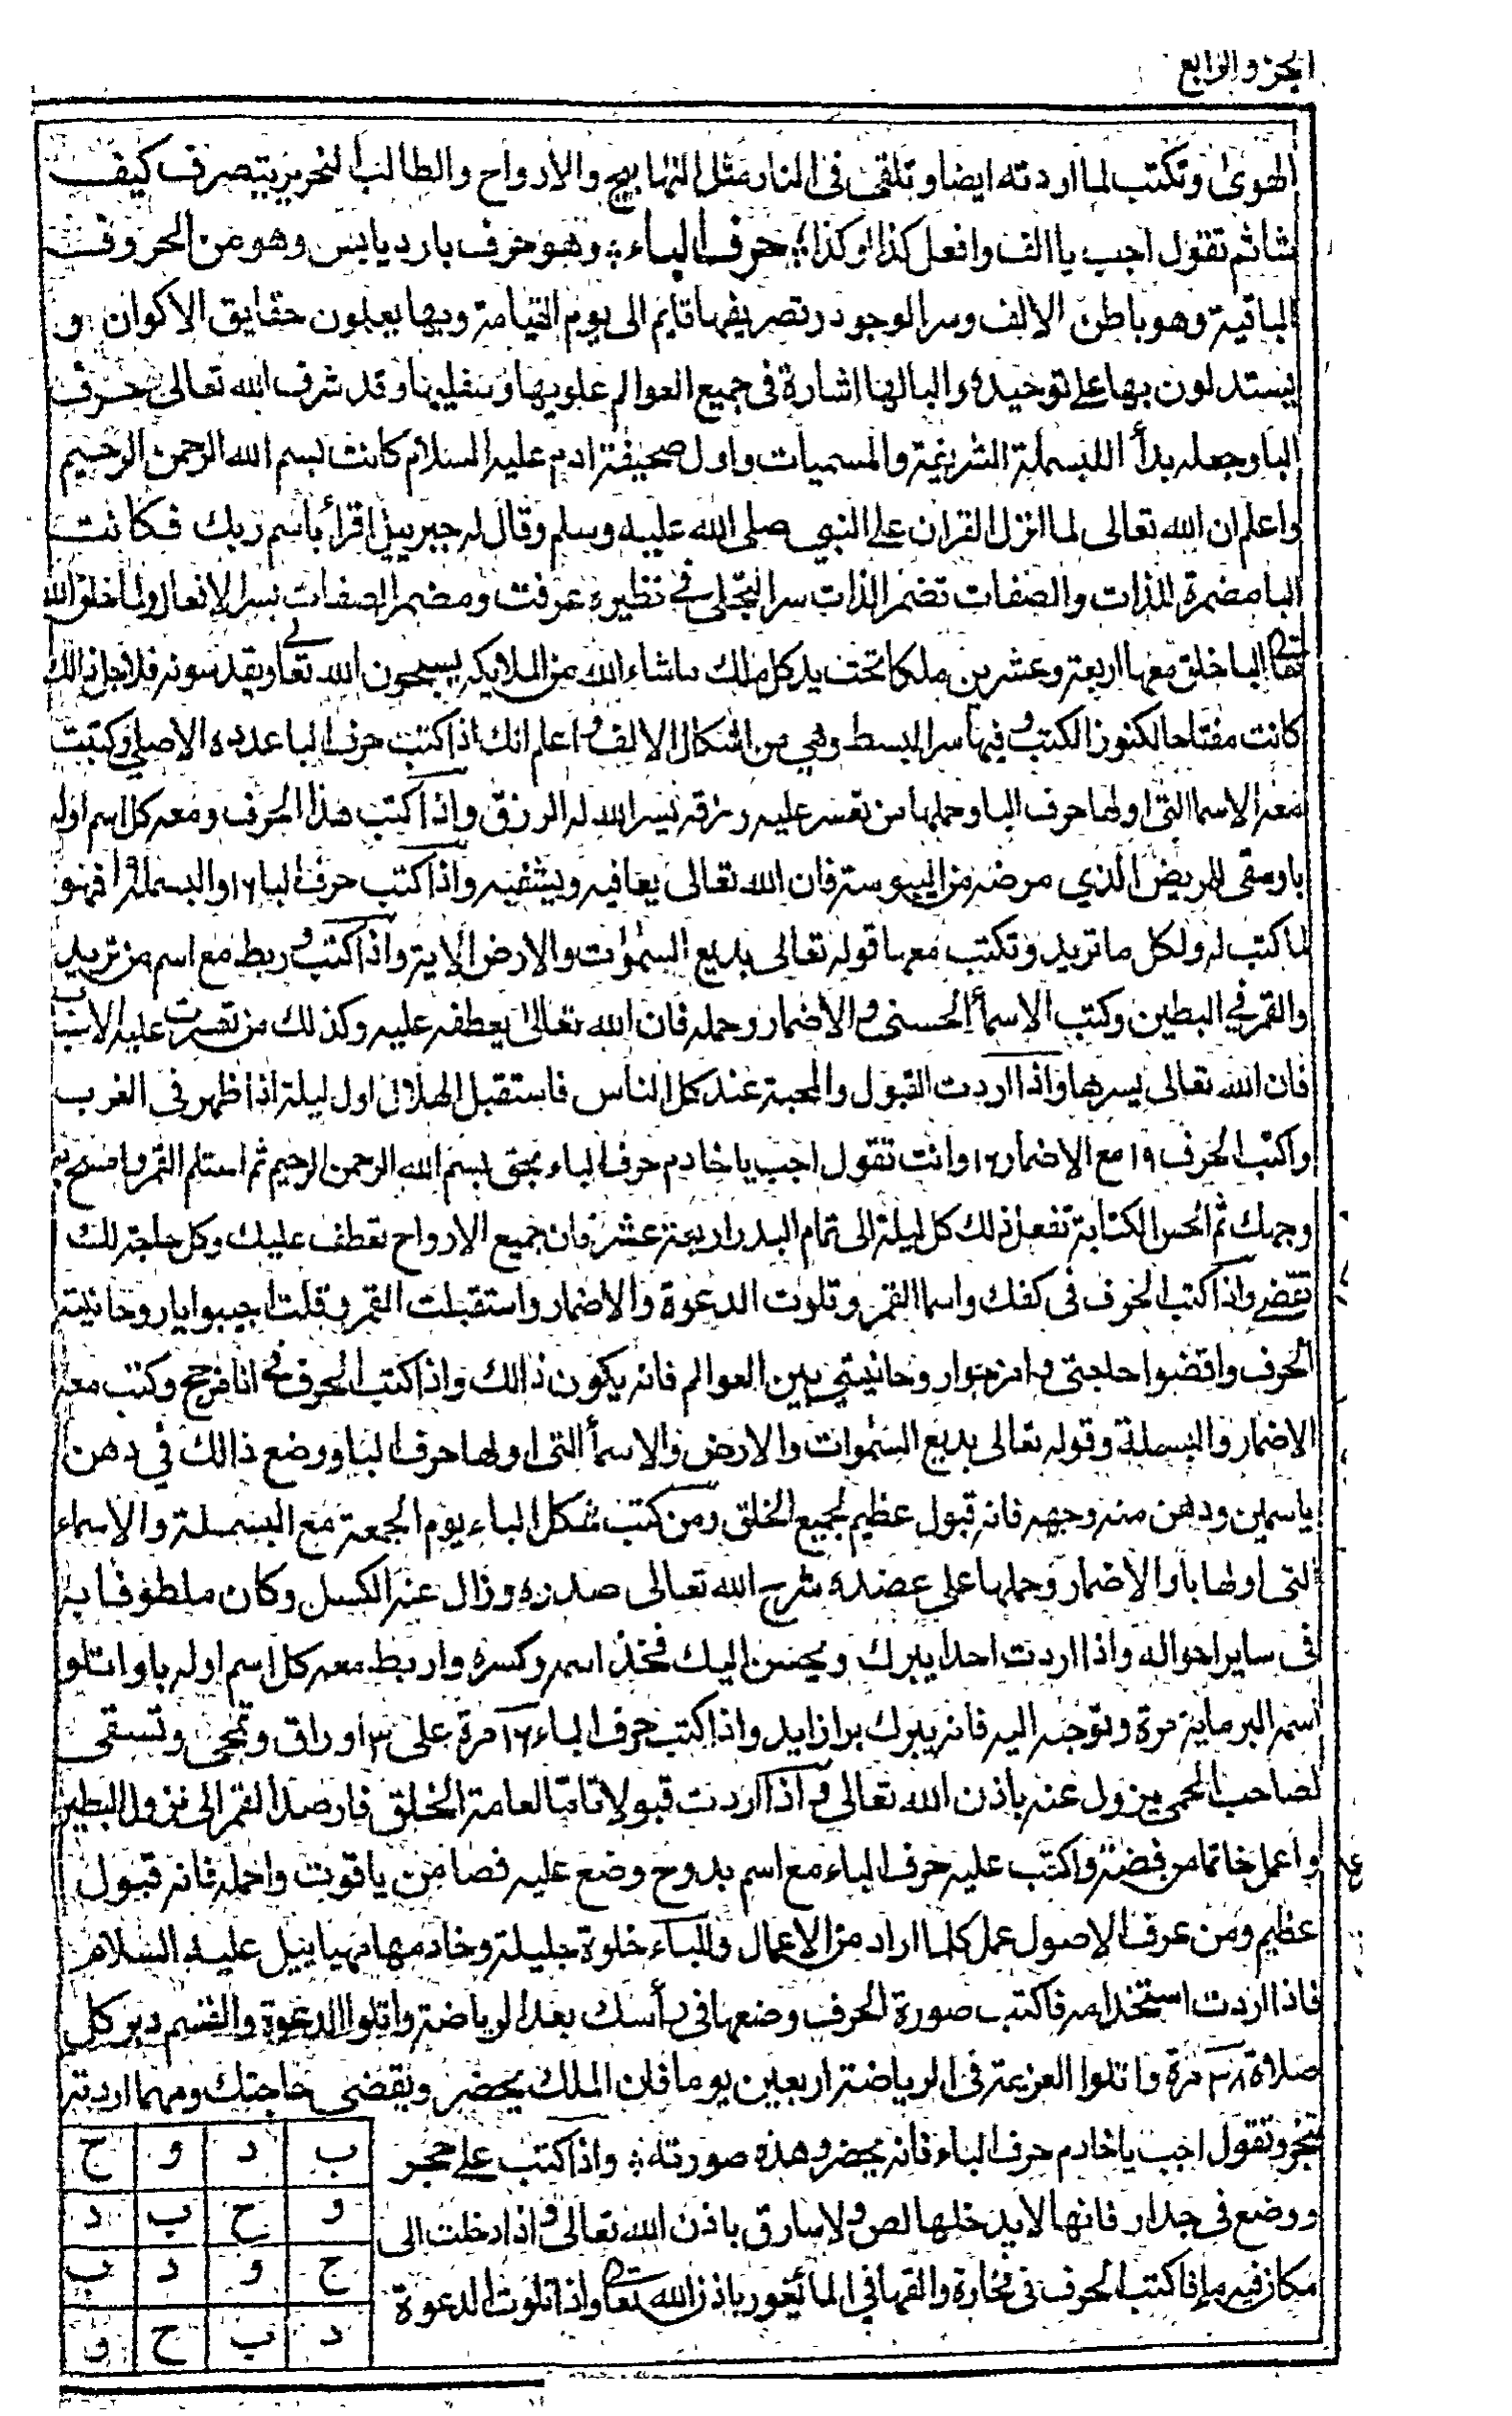 الجزو الرابع
الهوى وتكتب لما اردته ايضا وتلقى فى النار مثل التهابيج والارواح والطالب النحرير يتصرف كيف
شا ثم تقول اجب يا الف وافعل كذا وكذا؛ حرف الباء؛ وهو حرف بارد يابس وهو من الحروف
الباقية وهو باطن الالف وسر الوجود وتصريفها قايم الى يوم القيامة وبها يعلمون حقايق الاكوان و
يستدلون بها على توحيده والبا لها اشارة فى جميع العوالم علويها وسفليها وقد شرف الله تعالى حرف
البا وجعله بدأ البسملة الشريفة والمسميات واول صحيفة ادم عليه السلام كانت بسم الله الرحمن الرحيم
واعلم ان الله تعالى لما انزل القران على النبى صلى الله عليه وسلم وقال له جبرييل اقرأ باسم ربك فكانت
البا مضمرة للذات والصفات تضمر الذات سر التجلى فى نظيره عرفت ومضمر الصفات بسر الافعال ولما خلق الله
تعا البا خلق معها اربعة وعشرين ملكا تحت يد كل ملك ماشاء الله من الملايكة يسبحون الله تعالى ويقدسونه فلاجل ذالك
كانت مفتاحا لكنوز الكتب وفيها سر البسط وهى من اشكال الالف واعلم انك اذا كتبت حرف البا عدده الاصلى وكتبت
معه الاسما التى اولها حرف البا وحملها من تعسر عليه رزقه يسر الله له الرزق واذا كتب هذا الحرف ومعه كل اسم اوله
با وسقى للمريض الذي مرضه من اليبوسة فان الله تعالى يعافيه ويشفيه واذا كتب حرف البا ١٦ والبسملة ١٩ فهو
لما كتب له ولكل ما تريد وتكتب معها قوله تعالى بديع السموات والارض الاية واذا كتب وربط مع اسم من تريد
والقمر في البطين وكتب الاسمأ الحسنى والاضمار وحمله فان الله تعالى يعطفه عليه وكذلك من تعسرت عليه الاسباب
فان الله تعالى يسرها واذا اردت القبول والمحبة عند كل الناس فاستقبل الهلال اول ليلة اذا ظهر فى الغرب
واكتب الحرف ١٩ مع الاضمار ١٦ وانت تقول اجب يا خادم حرف الباء بحق بسم الله الرحمن الرحيم ثم استلم القمر وامسح به
وجهك ثم الحس الكتابة تفعل ذلك كل ليلة الى تمام البدر اربعة عشر فان جميع الارواح تعطف عليك وكل حاجة لك
تقضى واذا كتب الحرف فى كفك واسما القمر وتلوت الدعوة والاضمار واستقبلت القمر وقلت اجيبوا يا روحانية
الحرف واقضوا حاجتى وامزجوا روحانيتي بين العوالم فانه يكون ذالك واذا كتب الحرف فى انا فرجج وكتب معه
الاضمار والبسملة وقوله تعالى بديع السموات والارض والاسمأ التى اولها حرف البا ووضع ذالك في دهن
ياسمين ودهن منه وجهه فانه قبول عظيم لجميع الخلق ومن كتب شكل الباء يوم الجمعة مع البسملة والاسماء
التى اولها با والاضمار وحملها على عضده شرح الله تعالى صدره وزال عنه الكسل وكان ملطوفا به
فى ساير احواله واذا اردت احدا يبرك ويحسن اليك فخذ اسمه وكسره واربط معه كل اسم اوله با واتلو
اسمه البر ماية مرة وتوجه اليه فانه يبرك برا زايد واذا كتب حرف الباء ١٦ مرة على ٣ اوراق وتمحى وتسقى
لصاحب الحمى يزول عنه باذن الله تعالى واذا اردت قبولا تاما لعامة الخلق فارصد القمر الى نزول البطين
واعمل خاتما من فضة واكتب عليه حرف الباء مع اسم بدوح وضع عليه فصا من ياقوت واحمله فانه قبول
عظيم ومن عرف الاصول عمل كلما اراد من الاعمال وللباء خلوة جليلة وخادمها مهيائيل عليه السلام
فاذا اردت استخدامه فاكتب صورة الحرف وضعها فى رأسك بعد الرياضة واتلوا الدعوة والقسم دبر كل
صلاة ٣٨ مرة واتلوا العزيمة فى الرياضة اربعين يوما فان الملك يحضر ويقضى حاجتك ومهما اردته
تبخر وتقول اجب يا خادم حرف الباء فانه يحضر وهذه صورته؛ واذا كتب على حجر
ووضع فى جدار فانها لا يدخلها لص ولا سارق باذن الله تعالى واذا دخلت الى
مكان فيه ما فاكتب الحرف فى فخارة والقها في الما يغور باذن الله تعا واذا تلوت الدعوة
ب د و ح
و ح ب د
ح و د ب
د ب ح و